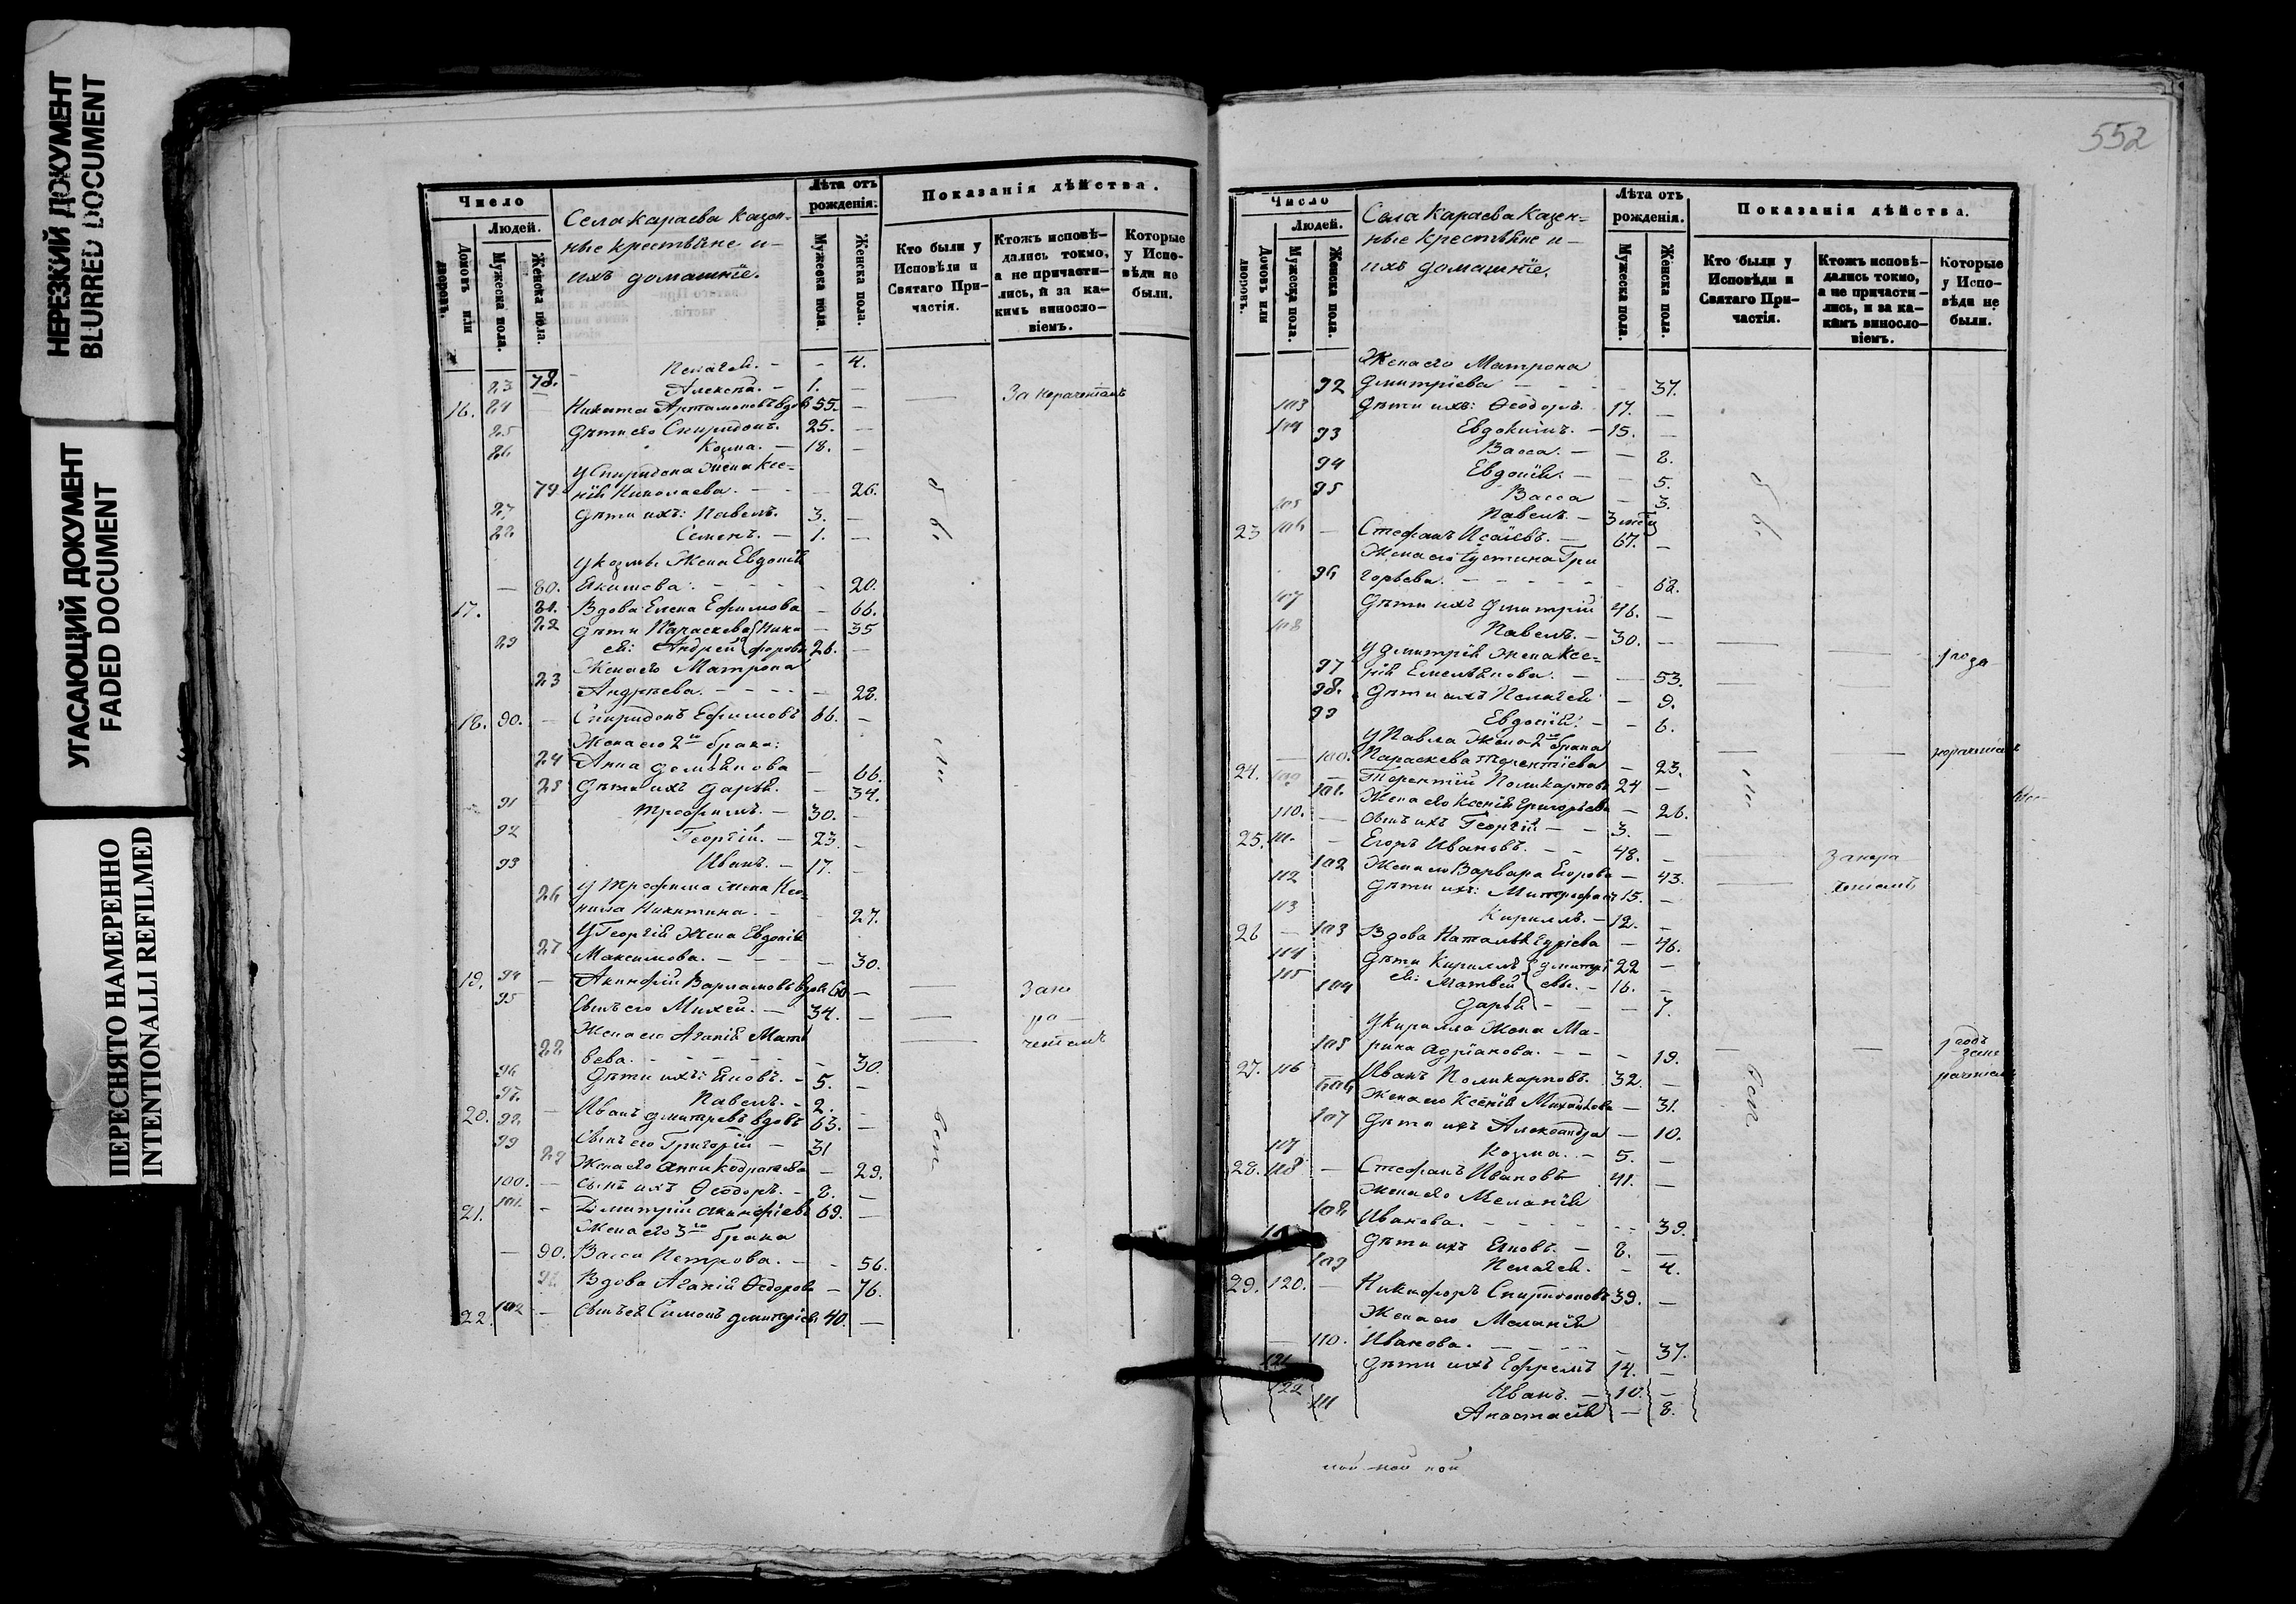 НЕРЕЗКИЙ ДОКУМЕНТ
BLURRED DOCUMENT
УГАСАЮЩИЙ ДОКУМЕНТ
FADED DOCUMENT
ПЕРЕСНЯТО НАМЕРЕННО
INTENTIONALLI REFILMED
Число
Людей.
Домовъ или дворовъ.
Мужеска пола.
Женска пола.
Села Караева Казен-
ные крестьяне и
ихъ домашніе.
Лѣта отъ
рожденія.
Мужеска пола.
Женска пола.
Показанія дѣйства.
Кто были у
Исповѣди и
Святаго При-
частія.
Ктожъ исповѣ-
дались токмо,
а не причасти-
лись, и за ка-
кимъ винносло-
віемъ.
Которые
у Испо-
вѣди не
были.
78. Пелагея. - - 4.
23 Алексѣй. - 1. -
16. 24 Никита Артамоновъ вдовъ 55. -
25 Дѣти его Спиридонъ. 25. -
26 Козма. - 18. -
У Спиридона жена Ксе-
79. нія Николаева. - - 26.
27 Дѣти ихъ: Павелъ. 3. -
28 Семенъ. - 1. -
У Козмы жена Евдокія
- 80. Якимова. - - 20.
17. 81. Вдова Елена Ефимова - 66.
82 Дѣти Параскева Ники - 35
29 ея: Андрей форовы 26. -
Жена его Матрона
83 Андреева. - - - 28.
18. 90. - Спиридонъ Ефимовъ 66. -
Жена его 2го брака:
84 Анна Демьянова - 66.
85 Дѣти ихъ Дарья. - 34.
91 Трофимъ. - 30. -
92 Георгій. - 23. -
93 Иванъ. - 17. -
86 У Трофима жена Нео-
нила Никитина. - - 27.
У Георгія жена Евдокія
87 Максимова. - - - 30.
19. 94 - Акинфій Варламовъ вдовъ 60 -
95 Сынъ его Михей. - 34. -
Жена его Агафія Матв
88 ѣева. - - - 30.
96 Дѣти ихъ: Яковъ. - 5. -
97. Павелъ. - 2. -
20. 98 - Иванъ Дмитревъ вдовъ 63. -
99 Сынъ его Григорій - 31
89 Жена его Анна Кодратьева - 29.
100. - Сынъ ихъ Ѳеодоръ. - 8. -
21. 101. - Димитрій Акинфіевъ 69. -
Жена его 3го брака
- 90. Васса Петрова. - - 56.
91. Вдова Агафія Ѳедорова - 76.
22. 102 - Сынъ ея Симонъ Дмитріевъ 40. -
552
Число
Людей.
Домовъ или дворовъ.
Мужеска пола.
Женска пола.
Села Караева Казен-
ные крестьяне и
ихъ домашніе.
Лѣта отъ
рожденія.
Мужеска пола.
Женска пола.
Показанія дѣйства.
Кто были у
Исповѣди и
Святаго При-
частія.
Ктожъ исповѣ-
дались токмо,
а не причасти-
лись, и за ка-
кимъ винносло-
віемъ.
Которые
у Испо-
вѣди не
были.
Жена его Матрона
92 Дмитріева - - - 37.
103 Дѣти ихъ: Ѳеодоръ. 17. -
104 Евдокимъ. - 15. -
93 Васса. - - 8.
94 Евдокія. - - 5.
95 Васса - 3.
105 Павелъ. -
23 106 - Стефанъ Исаіевъ. - 67. -
Жена его Устина Гри
96 горьева. - - - 68.
107 Дѣти ихъ Дмитрій 46. -
108 Павелъ. - 30. -
У Дмитрія жена Ксе-
97 нія Емельянова. - - 53.
98. Дѣти ихъ Пелагея - 9.
99 Евдокія. - - 6.
У Павла жена 2го брака
- 100. Параскева Терентіева - 23.
24. 109 - Терентій Поликарповъ 24 -
101. Жена его Ксенія Григорьева - 26.
110. - Сынъ ихъ Георгій - - 3. -
25. 111. - Егоръ Ивановъ. - - 48. -
102 Жена его Варвара Егорова - 43.
112 Дѣти ихъ: Митрофанъ 15. -
113 Кириллъ. - 12. -
26 - 103 Вдова Наталья Гуріева - 46.
114 Дѣти Кириллъ Дмитрі 22 -
115 ея: Матвей евы. - 16. -
104 Дарья - - 7.
У Кирилла жена Ма-
105 рина Адріанова. - - - 19.
27. 116 Иванъ Поликарповъ. 32. -
106 Жена его Ксенія Михайлова - 31.
107 Дѣти ихъ Александра - 10.
117 Козма. - 5. -
28. 118 - Стефанъ Ивановъ 41. -
Жена его Меланія
108 Иванова. - - - 39.
Дѣти ихъ Яковъ. - 8. -
109 Пелагея. - 4.
29. 120. - Никифоръ Спиридоновъ 39. -
Жена его Меланія
- 110. Иванова. - - - 37.
121 Дѣти ихъ Ефремъ 14. -
122 Иванъ. - 10. -
111 Анастасія - 8.